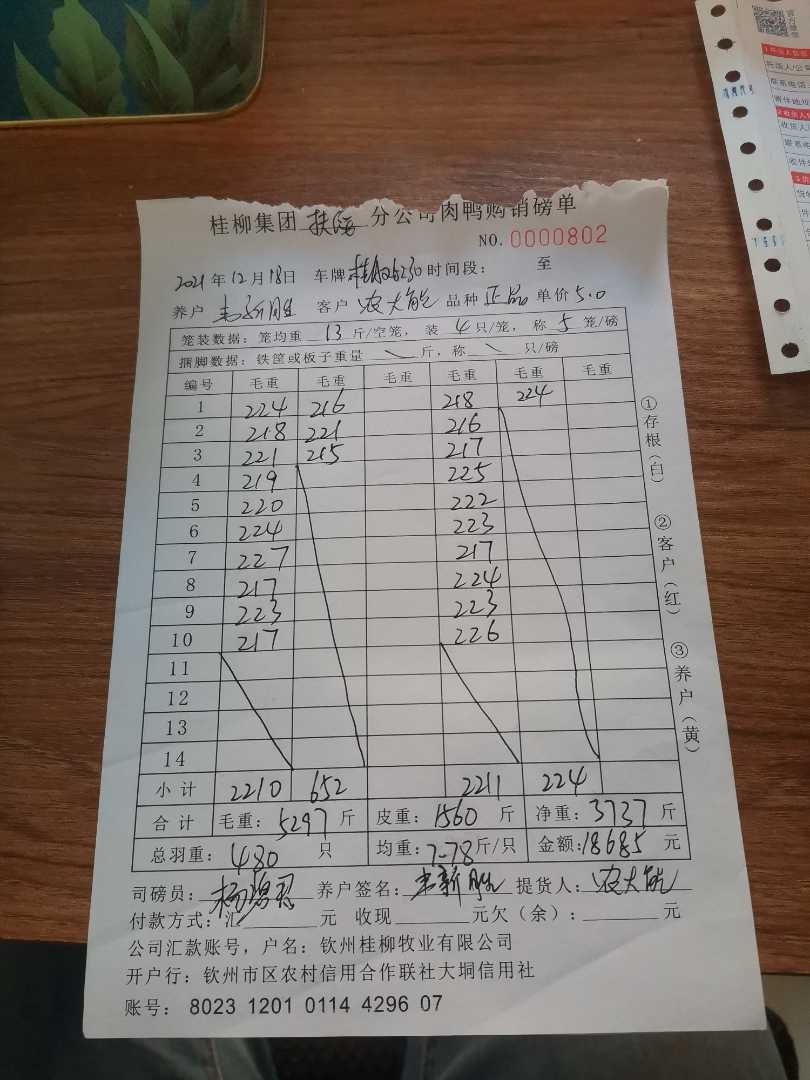 桂柳集团 扶绥 分公司肉鸭购销磅单
NO. 0000802
2021年12月18日 车牌 时间段： 至
养户 韦新胜 客户 农大能 品种 正品 单价 5.0
笼装数据：笼均重 13 斤/空笼， 装 4 只/笼， 称 5 笼/磅
捆脚数据：铁筐或板子重量 \ 斤，称 \ 只/磅
编号 毛重 毛重 毛重 毛重 毛重 毛重
1 224 216 218 224
2 218 221 216
3 221 215 217
4 219 225
5 220 222
6 224 223
7 227 217
8 217 224
9 223 223
10 217 226
11
12
13
14
小计 2210 652 2211 224
合计 毛重：5297 斤 皮重：1560 斤 净重：3737 斤
总羽重：480 只 均重：7-78 斤/只 金额：18685 元
司磅员： 养户签名：韦新胜 提货人：农大能
付款方式：汇 元 收现 元欠（余）： 元
公司汇款账号，户名：钦州桂柳牧业有限公司
开户行：钦州市区农村信用合作联社大垌信用社
账号： 8023 1201 0114 4296 07
①存根（白）
②客户（红）
③养户（黄）